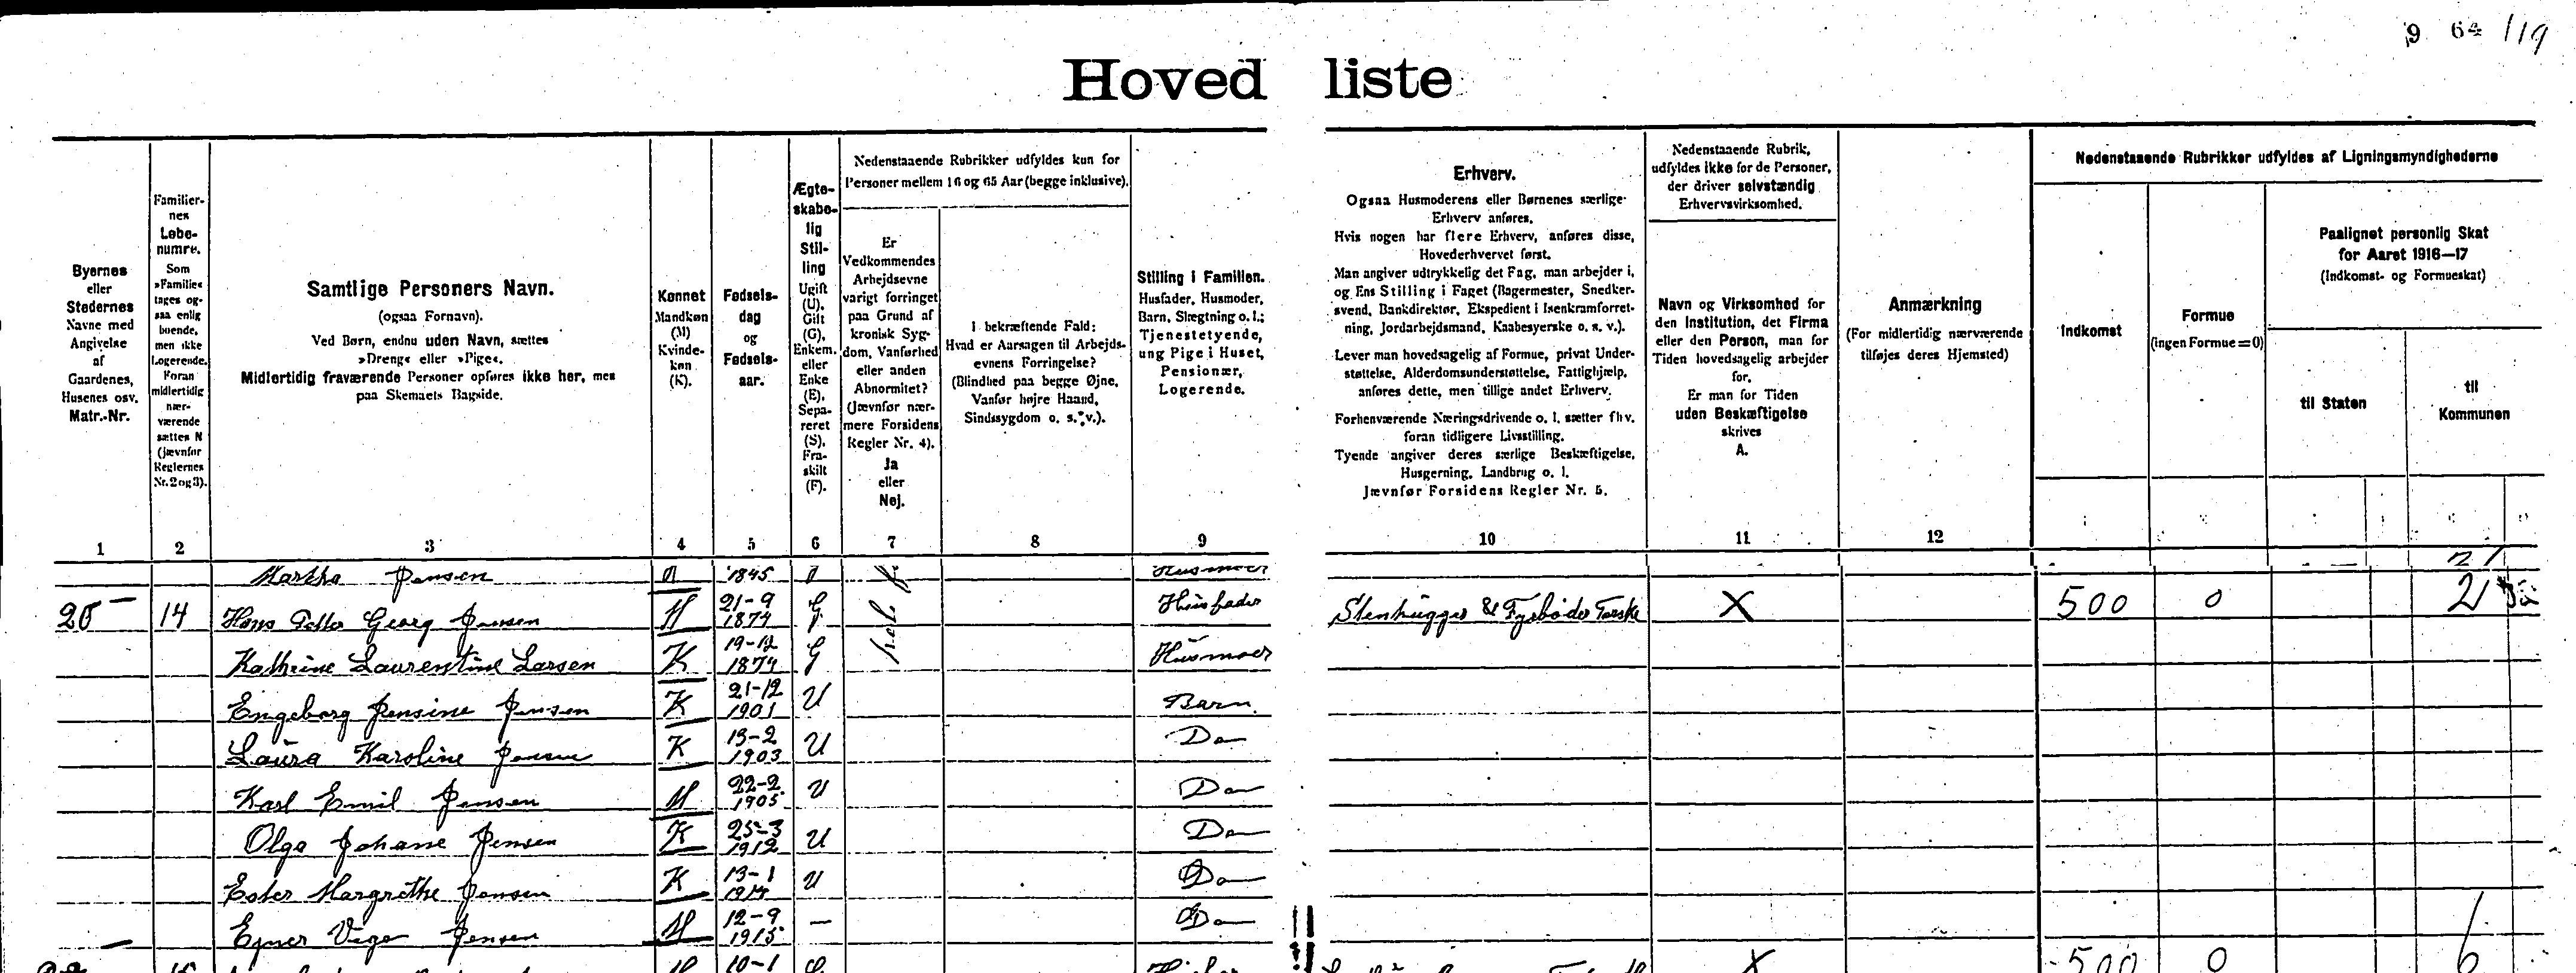 9 64 119
Hovedliste
Byernes
eller
Stedernes
Navne med
Angivelse
af
Gaardenes,
Husenes osv.
Matr.-Nr.
Familier-
nes
Løbe-
numre.
Som
»Familie«
tages og-
saa enlig
boende,
men ikke
Logerende.
Foran
midlertidig
nær-
værende
sættes N
(jævnfør
Reglernes
Nr. 2 og 3).
Samtlige Personers Navn.
(ogsaa Fornavn).
Ved Børn, endnu uden Navn, sættes
»Dreng« eller »Pige«.
Midlertidig fraværende Personer opføres ikke her, men
paa Skemaets Bagside.
Kønnet
Mandkøn
(M)
Kvinde-
køn
(K).
Fødsels-
dag
og
Fødsels-
aar.
Ægte-
skabe-
lig
Stil-
ling
Ugift
(U),
Gift
(G),
Enkem.
eller
Enke
(E),
Sepa-
reret
(S),
Fra-
skilt
(F).
Nedenstaaende Rubrikker udfyldes kun for
Personer mellem 16 og 65 Aar (begge inklusive).
Er
Vedkommendes
Arbejdsevne
varigt forringet
paa Grund af
kronisk Syg-
dom, Vanførhed
eller anden
Abnormitet?
(Jævnfør nær-
mere Forsidens
Regler Nr. 4).
Ja
eller
Nej.
I bekræftende Fald:
Hvad er Aarsagen til Arbejds-
evnens Forringelse?
(Blindhed paa begge Øjne,
Vanfør højre Haand,
Sindssygdom o. s. v.).
Stilling i Familien.
Husfader, Husmoder,
Barn, Slægtning o. l.;
Tjenestetyende,
ung Pige i Huset,
Pensionær,
Logerende.
Erhverv.
Ogsaa Husmoderens eller Børnenes særlige
Erhverv anføres.
Hvis nogen har flere Erhverv, anføres disse,
Hovederhvervet først.
Man angiver udtrykkelig det Fag, man arbejder i,
og Ens Stilling i Faget (Bagermester, Snedker-
svend, Bankdirektør, Ekspedient i Isenkramforret-
ning, Jordarbejdsmand, Kaabesyerske o. s. v.).
Lever man hovedsagelig af Formue, privat Under-
støttelse, Alderdomsunderstøttelse, Fattighjælp,
anføres dette, men tillige andet Erhverv.
Forhenværende Næringsdrivende o. l. sætter fhv.
foran tidligere Livsstilling.
Tyende angiver deres særlige Beskæftigelse,
Husgerning, Landbrug o. l.
Jævnfør Forsidens Regler Nr. 5.
Nedenstaaende Rubrik,
udfyldes ikke for de Personer,
der driver selvstændig
Erhvervsvirksomhed.
Navn og Virksomhed for
den Institution, det Firma
eller den Person, man for
Tiden hovedsagelig arbejder
for.
Er man for Tiden
uden Beskæftigelse
skrives
A.
Anmærkning
(For midlertidig nærværende
tilføjes deres Hjemsted)
Nedenstaaende Rubrikker udfyldes af Ligningsmyndighederne
Indkomst
Formue
(ingen Formue = 0)
Paalignet personlig Skat
for Aaret 1916—17
(Indkomst- og Formueskat)
til Staten
til
Kommunen
1 2 3 4 5 6 7 8 9 10 11 12
Martha Jensen 1845 Husmoer
14 Hans Petter Georg Jensen M 21-9 1874 G Husfader Stenhugger & Fyrbøder X 500 0 2
Kathrine Laurentine Larsen K 19-12 1874 G Husmoer
Engeborg Jensine Jensen K 21-12 1901 U Barn
Laura Karoline Jensen K 13-2 1903 U Do
Karl Emil Jensen M 22-2 1905 U Do
Olga Johanne Jensen K 25-3 1912 U Do
Ester Margrethe Jensen K 13-1 1914 U Do
Ejner Vigo Jensen M 12-9 1915 — Do
10-1 X 500 0 6